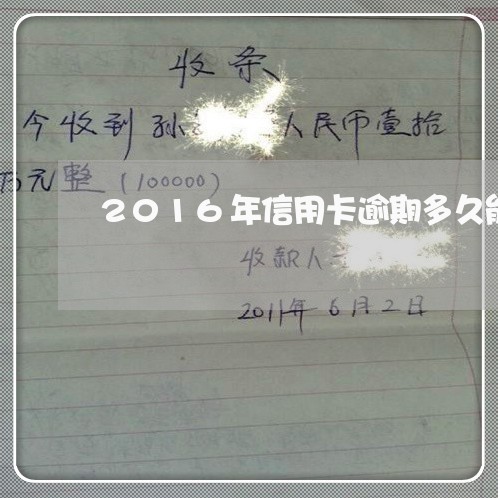 收条
今收到孙 人民币壹拾
万元整(100000)
2016年信用卡逾期多久
收款人
2011年6月2日